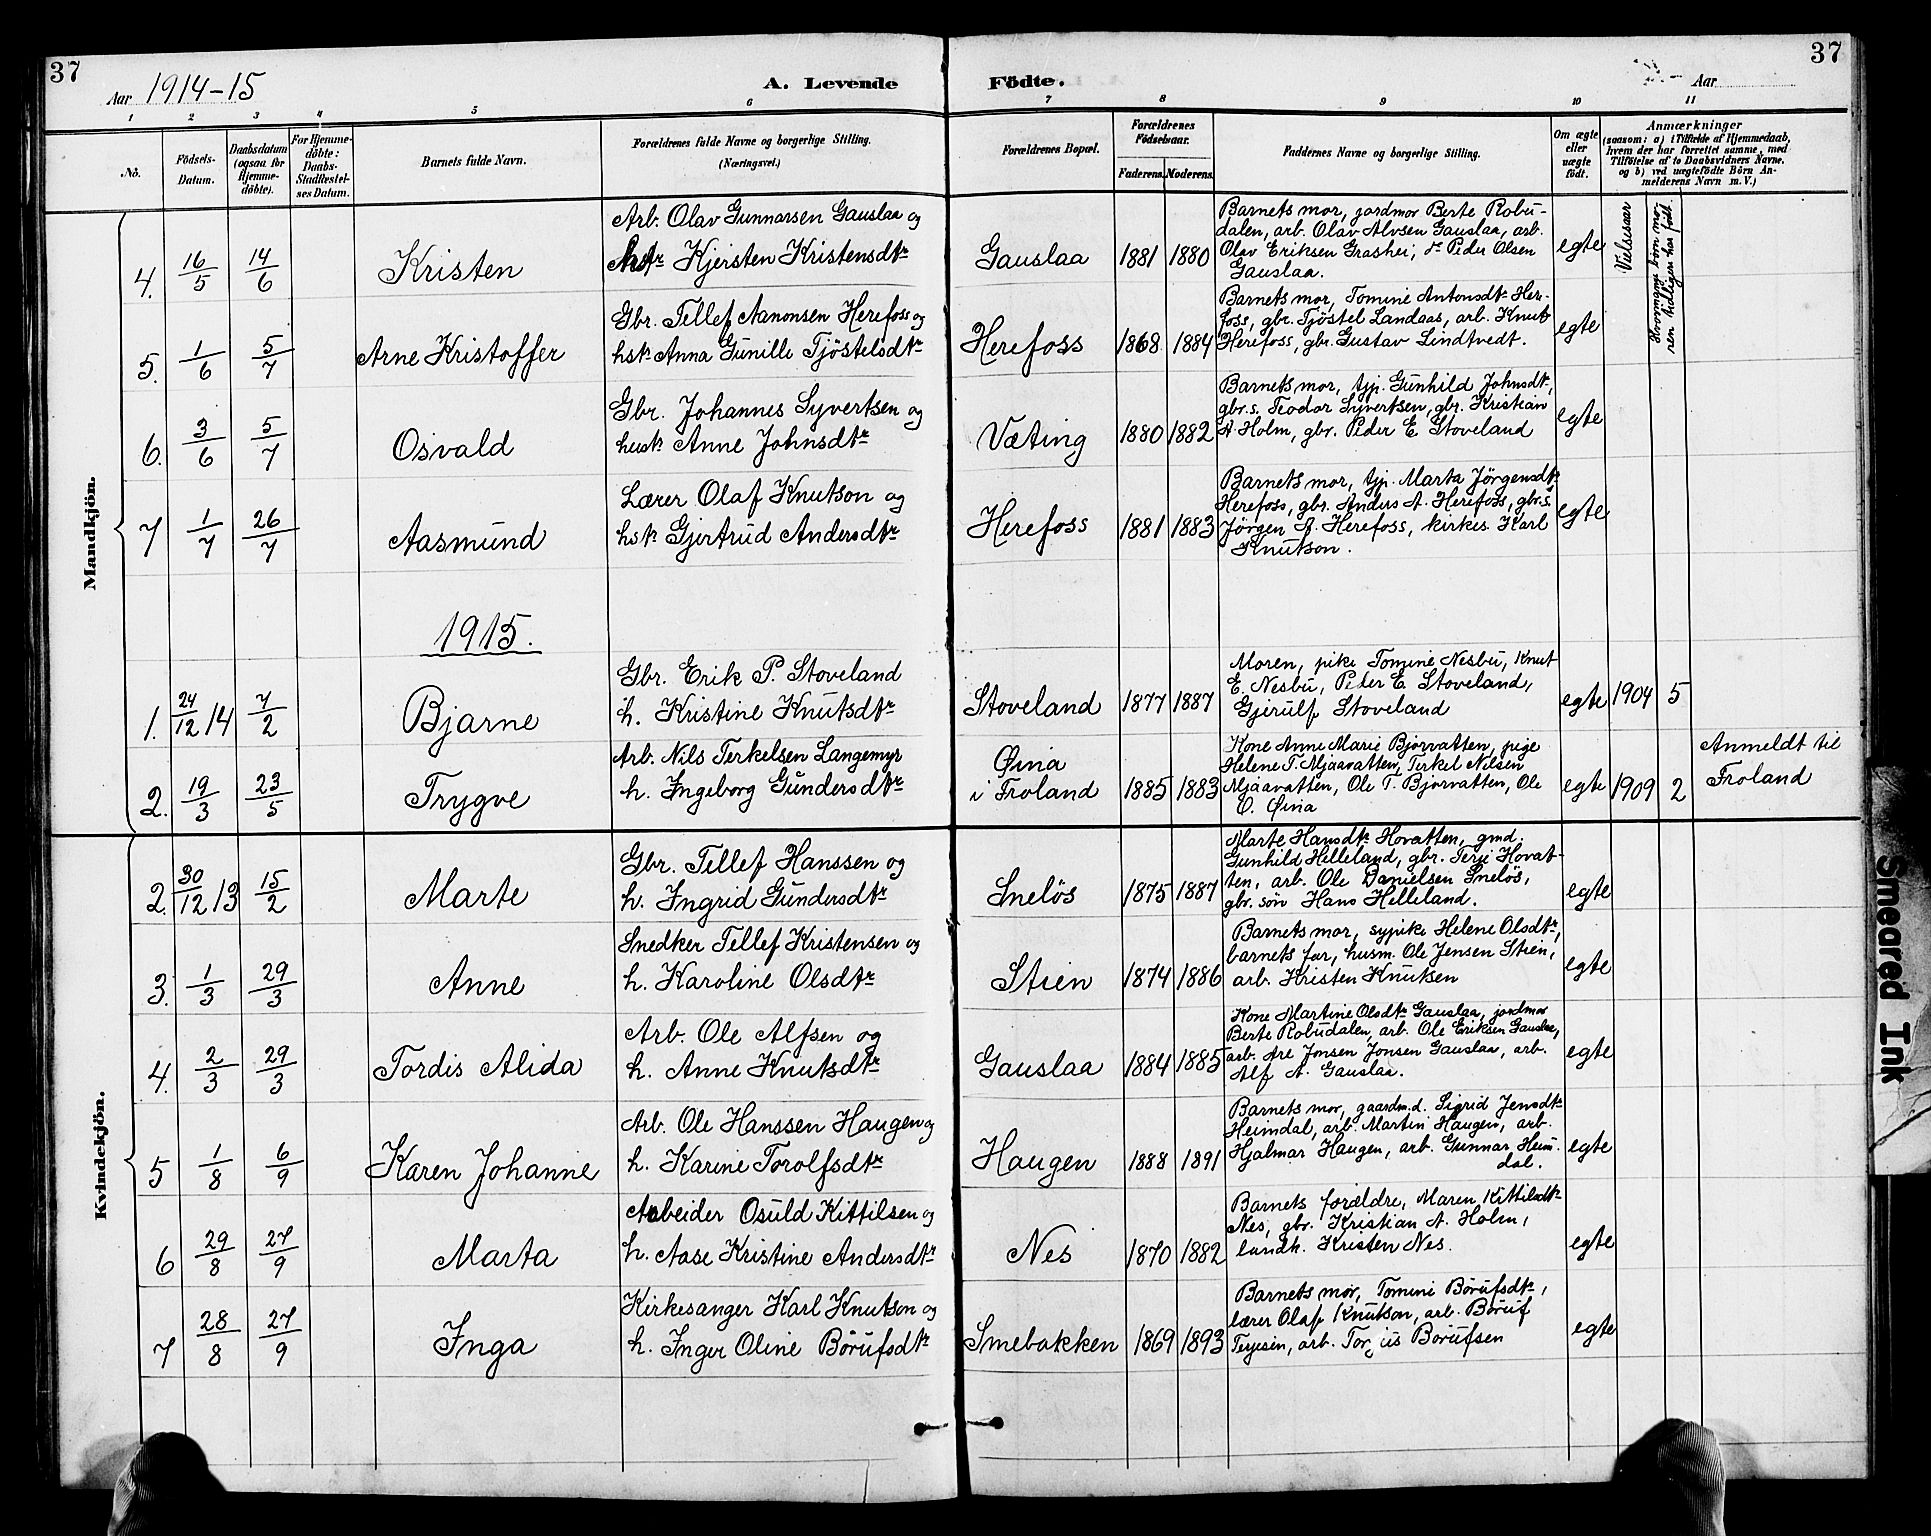 37
37
Aar 1914-15
A. Levende Födte.
Aar
1 2 3 4 5 6 7 8 9 10 11
No.
Födsels-Datum.
Daabsdatum (ogsaa for Hjemme-döbte).
For Hjemme-döbte: Daabs-Stadfæstel-ses Datum.
Barnets fulde Navn.
Forældrenes fulde Navne og borgerlige Stilling.
(Næringsvei.)
Forældrenes Bopæl.
Forældrenes Födselsaar.
Faderens. Moderens.
Faddernes Navne og borgerlige Stilling.
Om ægte eller uægte födt.
Anmærkninger
(saasom: a) i Tilfælde af Hjemmedaab,
hvem der har forrettet samme, med
Tilföielse af to Daabsvidners Navne.
og b) ved uægtefödte Börn An-
melderens Navn m. V.)
Vielsesaar
Hvormange börn mo-
ren endligen har födt
Mandkjön.
4. 16/5 14/6 Kristen
Arb. Olav Gunnarsen Gauslaa og
hstr Kjersten Kristensdtr
Gauslaa 1881 1880
Barnets mor, jordmor Berte Robu-
dalen, arb. Olav Alvsen Gauslaa, arb.
Olav Eriksen Grashei, Peder Olsen
Gauslaa.
egte
5. 1/6 5/7 Arne Kristoffer
Gbr. Tellef Aanonsen Herefoss og
hstr Anna Gunille Tjöstelsdtr
Herefoss 1868 1884
Barnets mor, Tomine Antonsdtr Her-
foss, gbr. Tjöstel Landaas, arb. Knut
Herefoss, gbr. Gustav Lindtvedt.
egte
6. 3/6 5/7 Osvald
Gbr. Johannes Syvertsen og
hustr Anne Johnsdtr
Væting 1880 1882
Barnets mor, tjp. Gunhild Johnsdtr,
gbr.s. Teodor Syvertsen, gbr. Kristian
A. Holm, gbr. Peder E. Stoveland
egte
7 1/7 26/7 Aasmund
Lærer Olaf Knutson og
hstr Gjertrud Andersdtr
Herefoss 1881 1883
Barnets mor, tjp. Marta Jørgensdtr
Herefoss, gbr. Anders A. Herefoss, gbr.s.
Jørgen A. Herefoss, kirkes. Karl
Knutson.
egte
1915.
1. 24/12 14 7/2 Bjarne
Gbr. Erik P. Stoveland
h. Kristine Knutsdtr
Stoveland 1877 1887
Moren, pike Tomine Nesbu, Knut
E. Nesbu, Peter E. Stoveland,
Gjerulf Stoveland
egte 1904 5
2. 19/3 23/5 Trygve
Arb. Nils Terkelsen Langemyr
h. Ingeborg Gundersdtr
Øina
i Froland 1885 1883
Kone Anne Marie Bjorvatten, pige
Helene T. Mjaavatten, Terkel Nilsen
Mjaavatten, Ole T. Bjorvatten, Ole
O. Øina
egte 1909 2
Anmeldt til
Froland
Kvindekjön.
2. 30/12 13 15/2 Marte
Gbr. Tellef Hanssen og
h. Ingrid Gundersdtr
Snelös 1875 1887
Marte Hansdtr Hovatten, gmd.
Gunhild Helleland, gbr. Terje Hovat-
ten, arb. Ole Danielsen Snelös,
gbr. sön Hans Helleland.
egte
3. 1/3 29/3 Anne
Snedker Tellef Kristensen og
h. Karoline Olsdtr
Stien 1874 1886
Barnets mor, sypike Helene Olsdtr,
barnets far, husm. Ole Jensen Stien,
arb. Kristen Knutsen
egte
4. 2/3 29/3 Tordis Alida
Arb. Ole Alfsen og
h. Anne Knutsdtr
Gauslaa 1884 1885
Kone Martine Olsdtr Gauslaa, jordmor
Berte Robudalen, arb. Ole Eriksen Gauslaa,
arb. Are Jonsen Jonsen Gauslaa, arb.
Alf A. Gauslaa.
egte
5 1/8 6/9 Karen Johanne
Arb. Ole Hanssen Haugen og
h. Karine Torolfsdtr
Haugen 1888 1891
Barnets mor, gaardm.d. Sigrid Jensdtr
Heimdal, arb. Martin Haugen, arb.
Hjalmar Haugen, arb. Gunnar Heim-
dal.
egte
6 29/8 27/9 Marta
Arbeider Osuld Kittilsen og
h. Aase Kristine Andersdtr
Nes 1870 1882
Barnets forældre, Maren Kittilsdtr
Nes, gbr. Kristian A. Holm,
landh. Kristen Nes.
egte
7 28/8 27/9 Inga
Kirkesanger Karl Knutson og
h. Inger Oline Börufsdtr
Smebakken 1869 1893
Barnets mor, Tomine Börufsdtr,
lærer Olaf Knutson, arb. Böruf
Terjesen, arb. Torjus Borufsen
egte
Smeared Ink